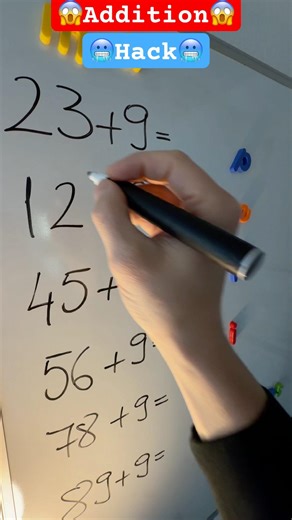 😱Addition😱
🥶Hack🥶
23+9=
12
45+
56+9=
78+9=
89+9=